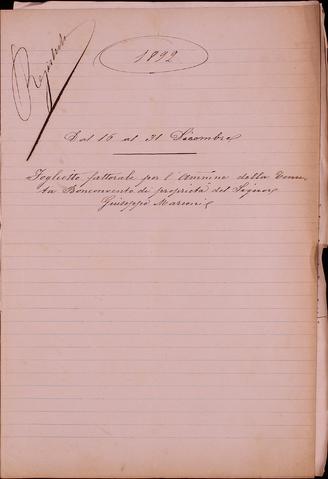 Registrato
1892
Dal 16 al 31 Dicembre
Foglietto fattorale per l'Ammne della Tenu-
ta Bonconvento di proprietà del Signor
Giuseppe Marconi